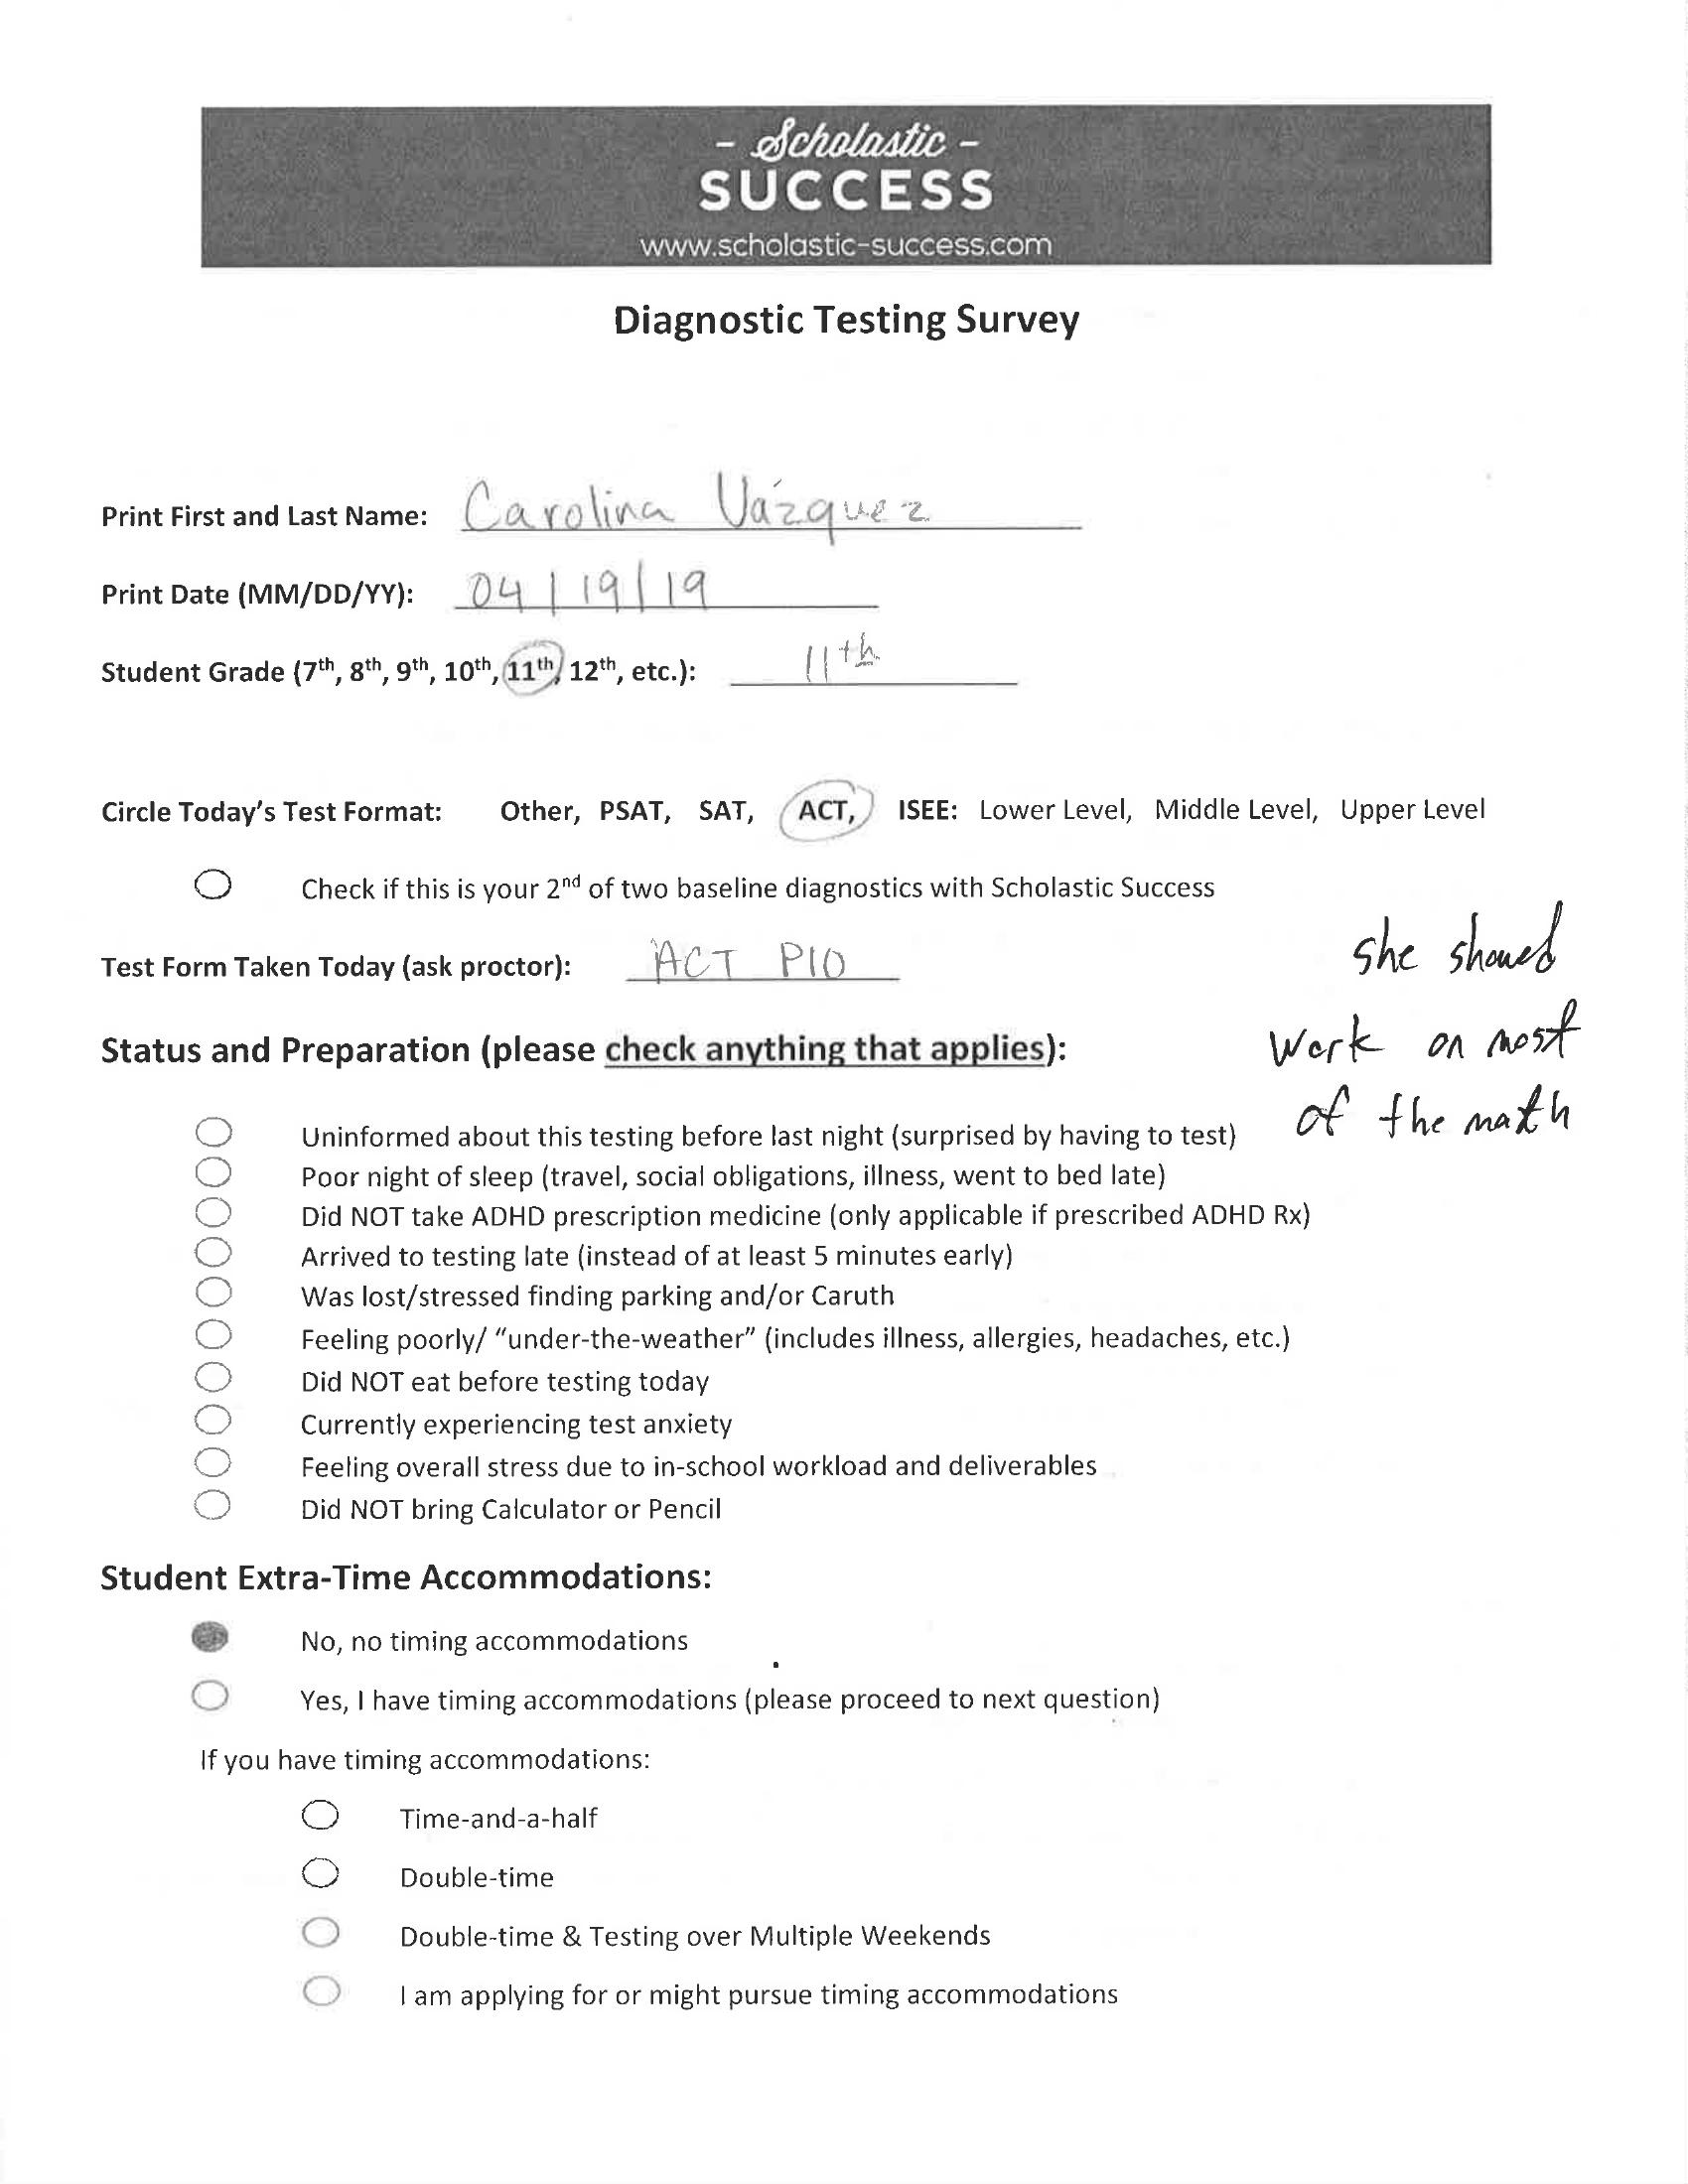 - Scholastic -
SUCCESS
www.scholastic-success.com
Diagnostic Testing Survey
Print First and Last Name: Carolina Vázquez
Print Date (MM/DD/YY): 04/19/19
Student Grade (7th, 8th, 9th, 10th, 11th, 12th, etc.): 11th
Circle Today's Test Format: Other, PSAT, SAT, ACT, ISEE: Lower Level, Middle Level, Upper Level
Check if this is your 2nd of two baseline diagnostics with Scholastic Success
Test Form Taken Today (ask proctor): ACT P10
she showed
work on most
of the math
Status and Preparation (please check anything that applies):
Uninformed about this testing before last night (surprised by having to test)
Poor night of sleep (travel, social obligations, illness, went to bed late)
Did NOT take ADHD prescription medicine (only applicable if prescribed ADHD Rx)
Arrived to testing late (instead of at least 5 minutes early)
Was lost/stressed finding parking and/or Caruth
Feeling poorly/ “under-the-weather” (includes illness, allergies, headaches, etc.)
Did NOT eat before testing today
Currently experiencing test anxiety
Feeling overall stress due to in-school workload and deliverables
Did NOT bring Calculator or Pencil
Student Extra-Time Accommodations:
No, no timing accommodations
Yes, I have timing accommodations (please proceed to next question)
If you have timing accommodations:
Time-and-a-half
Double-time
Double-time & Testing over Multiple Weekends
I am applying for or might pursue timing accommodations